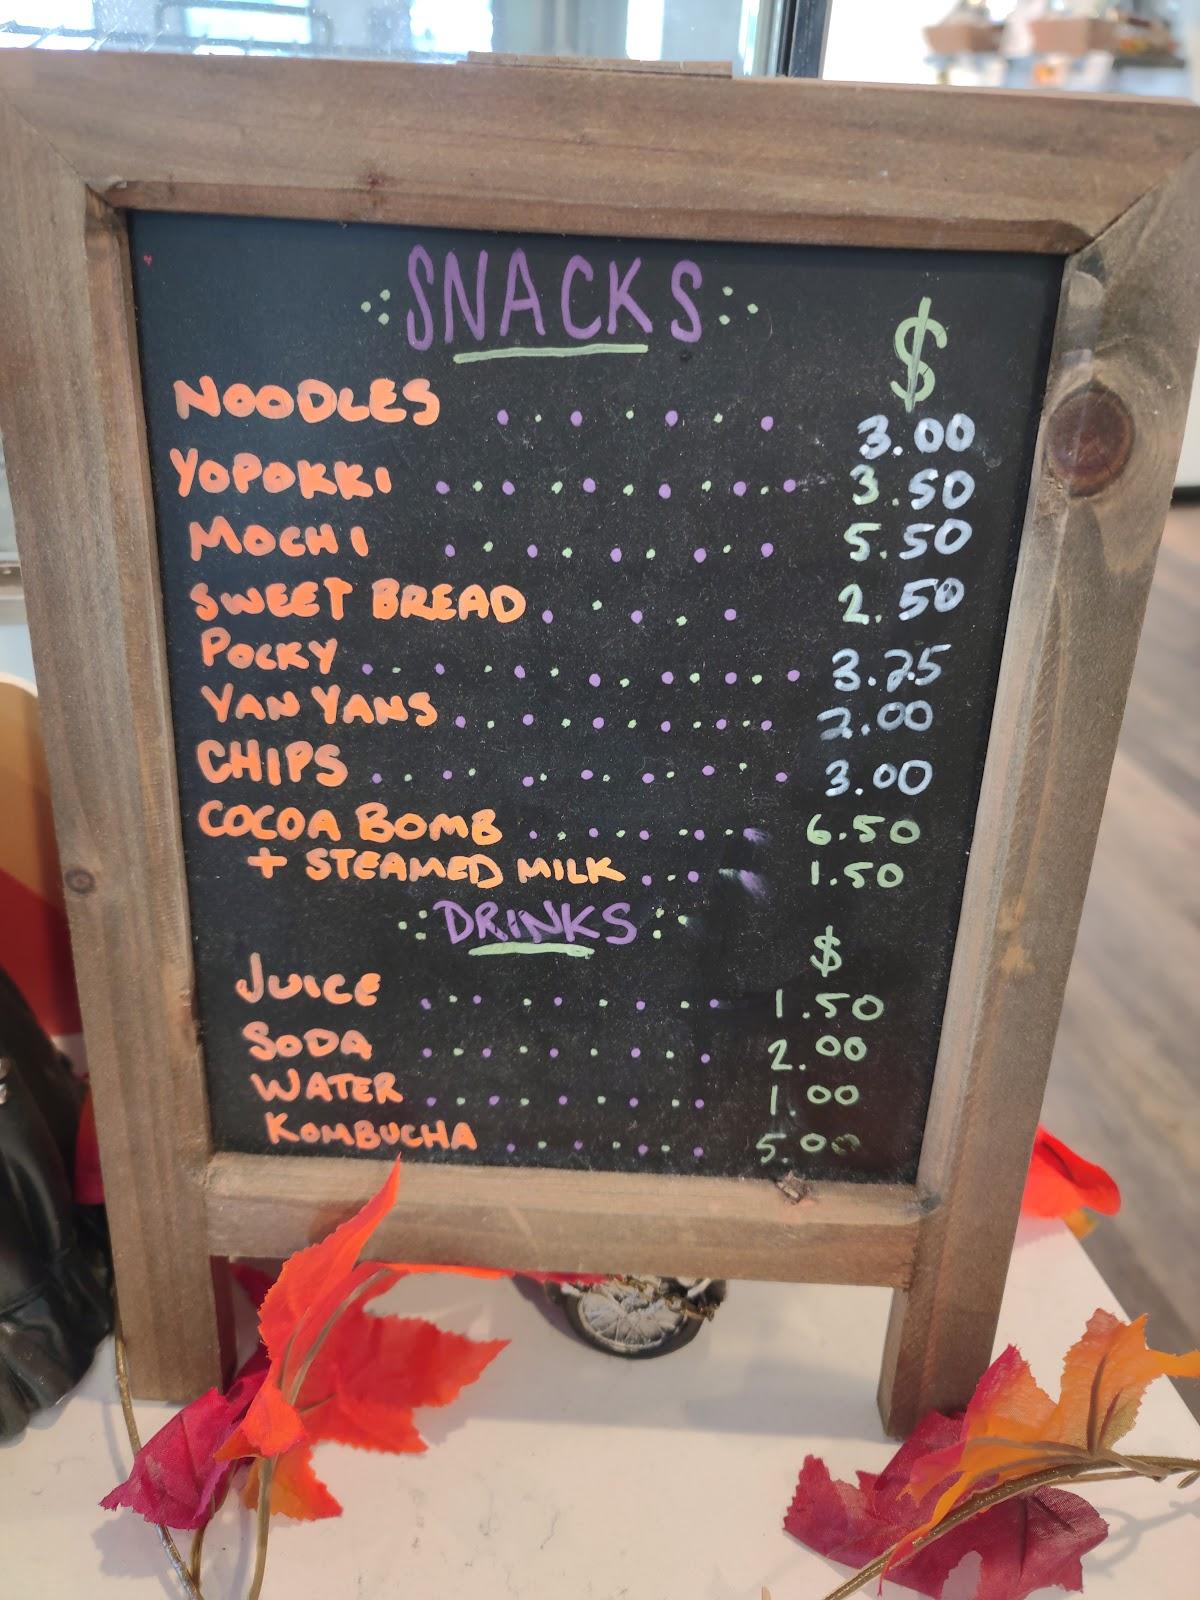 SNACKS
$
NOODLES 3.00
YOPOKKI 3.50
MOCHI 5.50
SWEET BREAD 2.50
POCKY 3.25
YAN YANS 2.00
CHIPS 3.00
COCOA BOMB 6.50
+ STEAMED MILK 1.50
DRINKS
$
JUICE 1.50
SODA 2.00
WATER 1.00
KOMBUCHA 5.00